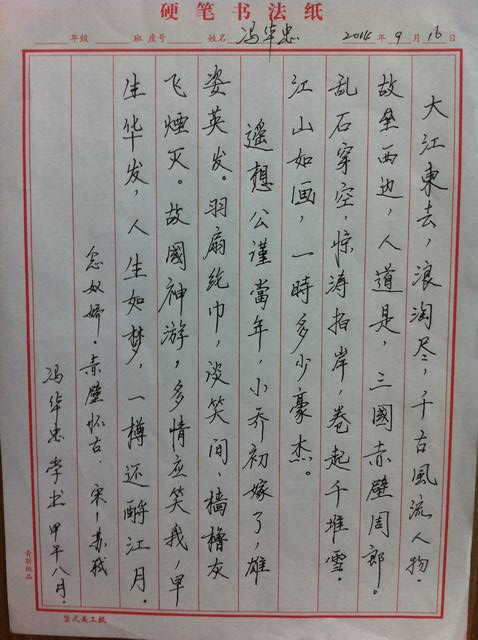 硬笔书法纸
年级 班 座号 姓名 冯华忠 2014年9月16日
大江東去，浪淘尽，千古風流人物
故垒西边，人道是，三國赤壁周郎。
乱石穿空，惊涛拍岸，卷起千堆雪。
江山如画，一時多少豪杰。
遥想公谨當年，小乔初嫁了，雄
姿英发。羽扇纶巾，谈笑间、樯橹灰
飞煙灭。故國神游，多情应笑我，早
生华发，人生如梦，一樽还酹江月。
念奴娇·赤壁怀古．宋·苏轼
冯华忠学书甲午八月．
青联纸品
竖式美工纸